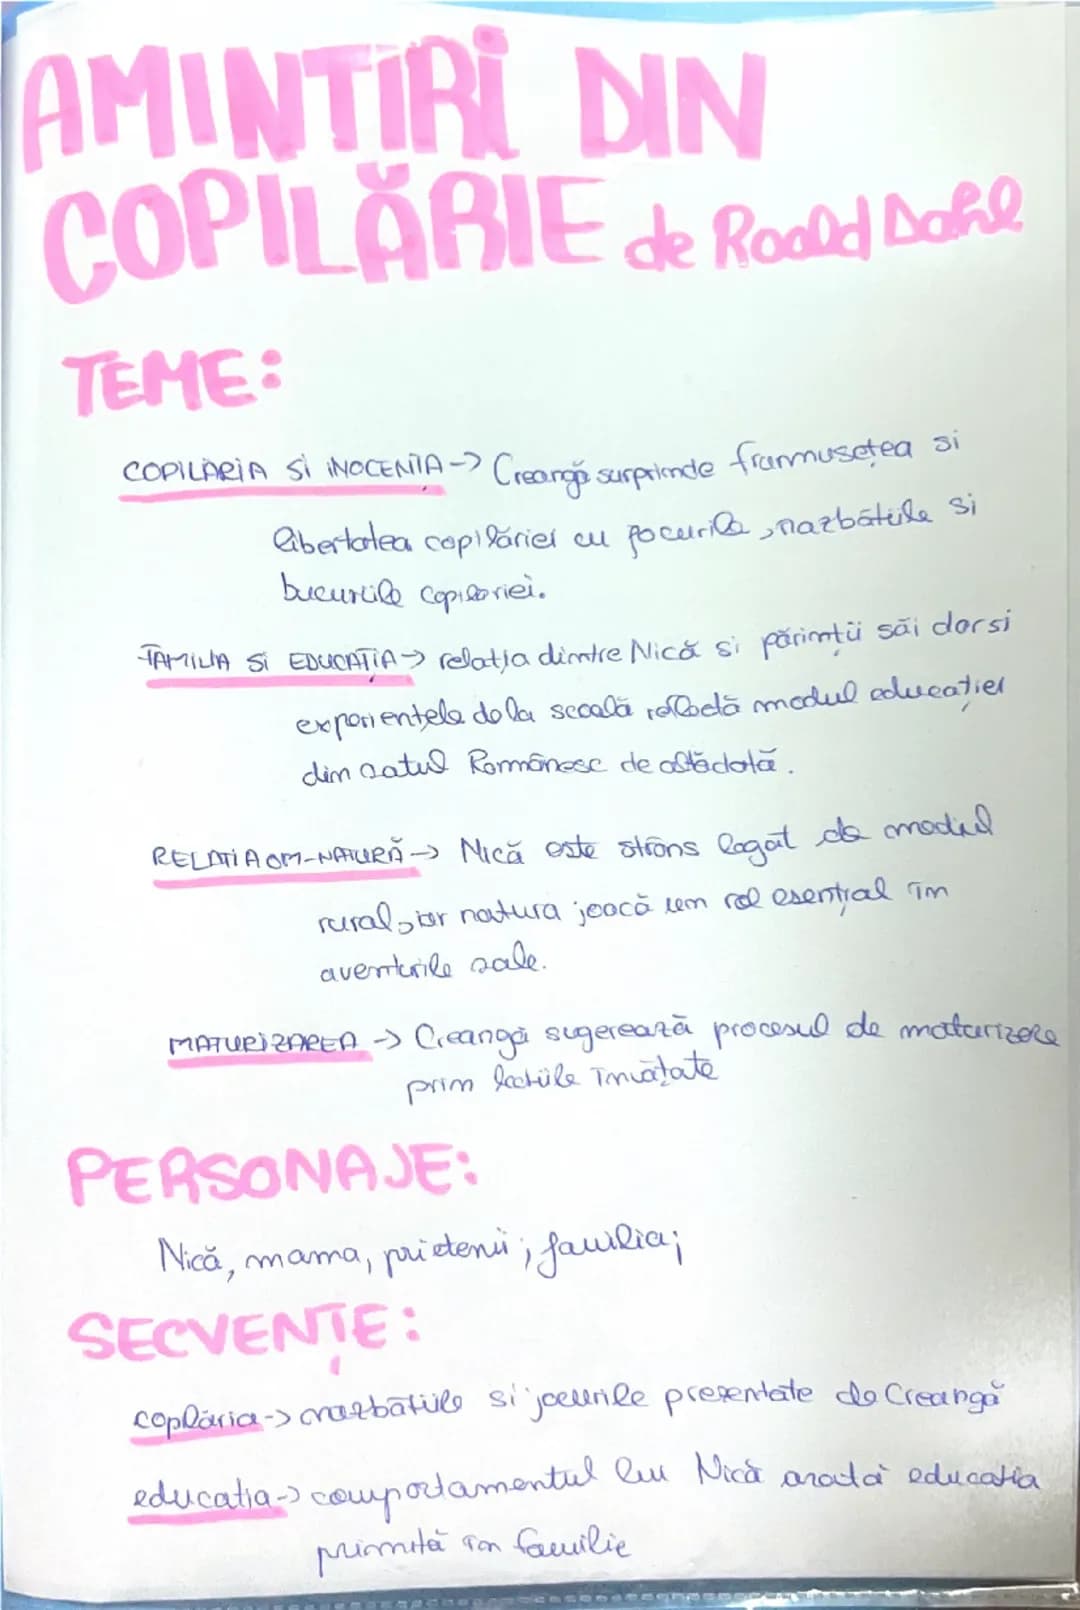 AMINTIRI DIN
COPILĂRIE de Roald Dahl
TEME:
COPILĂRIA SI INOCENȚA -> Creangă surprinde frumusețea si
libertatea copilăriei cu jocurile, nazbâtiile si
bucuriile copilariei.
FAMILIA SI EDUCAȚIA -> relația dintre Nică si părinții săi dar si
experiențele de la scoală reflectă modul educației
din satul Românesc de altădată.
RELATIA OM-NATURĂ -> Nică este strâns legat de mediul
rural, iar natura joacă un rol esențial în
aventurile sale.
MATURIZAREA -> Creangă sugerează procesul de maturizare
prin lectiile învățate
PERSONAJE:
Nică, mama, prietenii; familia;
SECVENȚE:
coplăria -> nazbâtiile si jocurile prezentate de Creangă
educatia -> comportamentul lui Nică arată educatia
primită în familie